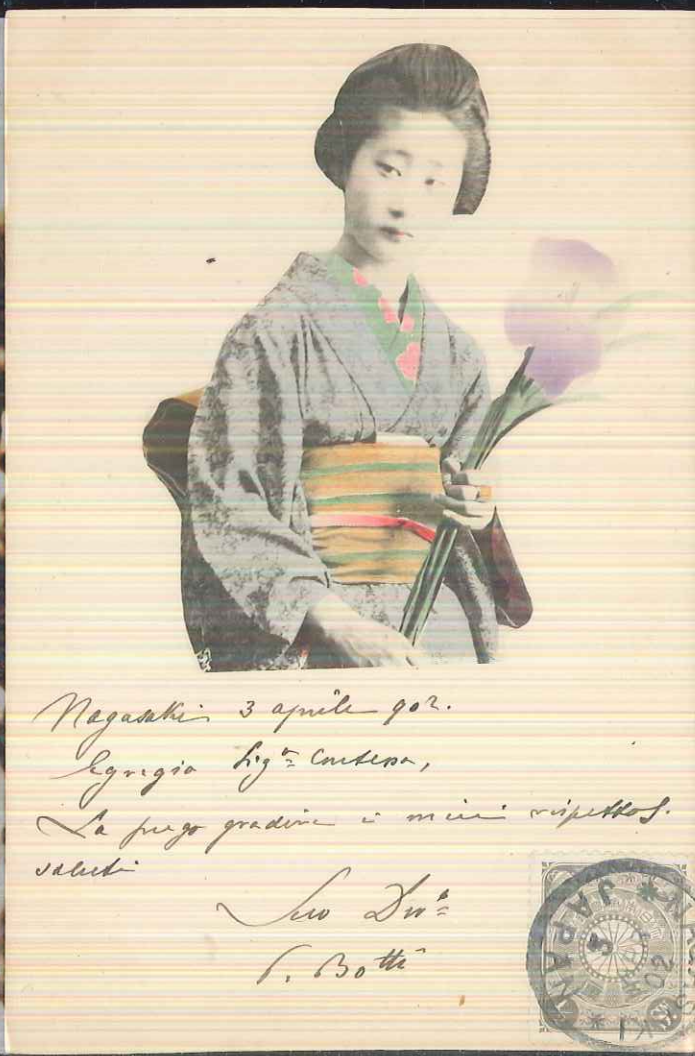 Nagasaki 3 aprile 902.
Egregia Sigª Contessa,
La prego gradire i miei rispettos.
saluti
Suo Devº
P. Botti
JAPAN